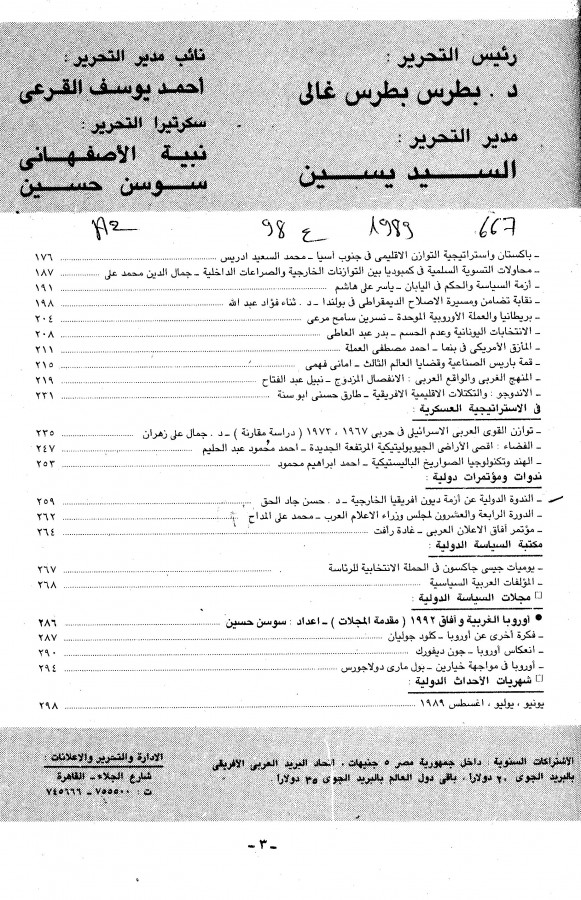 رئيس التحرير :
د . بطرس بطرس غالى
مدير التحرير :
السيد يسين
نائب مدير التحرير :
أحمد يوسف القرعى
سكرتيرا التحرير :
نبية الأصفهانى
سوسن حسين
667 1989 ع 98
ـ باكستان واستراتيجية التوازن الاقليمى فى جنوب آسيا ـ محمد السعيد ادريس ١٧٦
ـ محاولات التسوية السلمية فى كمبوديا بين التوازنات الخارجية والصراعات الداخلية ـ جمال الدين محمد على ١٨٧
ـ أزمة السياسة والحكم فى اليابان ـ ياسر على هاشم ١٩١
ـ نقابة تضامن ومسيرة الاصلاح الديمقراطى فى بولندا ـ د . ثناء فؤاد عبد الله ١٩٨
ـ بريطانيا والعملة الأوروبية الموحدة ـ نسرين سامح مرعى ٢٠٤
ـ الانتخابات اليونانية وعدم الحسم ـ بدر عبد العاطى ٢٠٨
ـ المأزق الأمريكى فى بنما ـ احمد مصطفى العملة ٢١١
ـ قمة باريس الصناعية وقضايا العالم الثالث ـ امانى فهمى ٢١٥
ـ المنهج الغربى والواقع العربى : الانفصال المزدوج ـ نبيل عبد الفتاح ٢١٩
ـ الاندوجو : والتكتلات الاقليمية الافريقية ـ طارق حسنى ابو سنة ٢٣١
فى الاستراتيجية العسكرية :
ـ توازن القوى العربى الاسرائيلى فى حربى ١٩٦٧ ، ١٩٧٣ ( دراسة مقارنة ) ـ د . جمال على زهران ٢٣٥
ـ الفضاء : اقصى الأراضى الجيوبوليتيكية المرتفعة الجديدة ـ احمد محمود عبد الحليم ٢٤٧
ـ الهند وتكنولوجيا الصواريخ الباليستيكية ـ احمد ابراهيم محمود ٢٥٣
ندوات ومؤتمرات دولية :
ـ الندوة الدولية عن أزمة ديون افريقيا الخارجية ـ د . حسن جاد الحق ٢٥٩
ـ الدورة الرابعة والعشرون لمجلس وزراء الاعلام العرب ـ محمد على المداح ٢٦٢
ـ مؤتمر آفاق الاعلان العربى ـ غادة رأفت ٢٦٤
مكتبة السياسة الدولية :
ـ يوميات جيسى جاكسون فى الحملة الانتخابية للرئاسة ٢٦٧
ـ المؤلفات العربية السياسية ٢٦٨
□ مجلات السياسة الدولية :
● أوروبا الغربية وآفاق ١٩٩٢ ( مقدمة المجلات ) ـ اعداد : سوسن حسين ٢٨٦
ـ فكرة أخرى عن أوروبا ـ كلود جوليان ٢٨٧
ـ انعكاس أوروبا ـ جون ديفورك ٢٩٠
ـ أوروبا فى مواجهة خيارين ـ بول مارى دولاجورس ٢٩٤
□ شهريات الأحداث الدولية :
يونيو ، يوليو ، اغسطس ١٩٨٩ ٢٩٨
الاشتراكات السنوية : داخل جمهورية مصر ٥ جنيهات ، اتحاد البريد العربى الأفريقى
بالبريد الجوى ٢٠ دولارا ، باقى دول العالم بالبريد الجوى ٣٥ دولارا .
الادارة والتحرير والاعلانات :
شارع الجلاء ـ القاهرة
ت : ٧٥٥٥٠٠ ـ ٧٤٥٦٦٦
ـ ٣ ـ